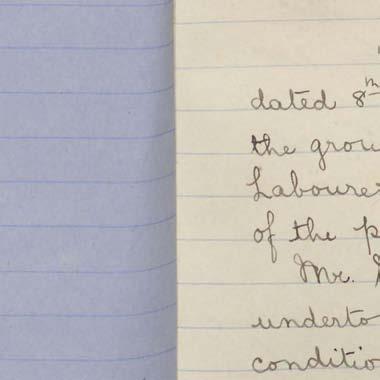 dated 8th
the grou
Laboure
of the p
Mr.
underto
conditio